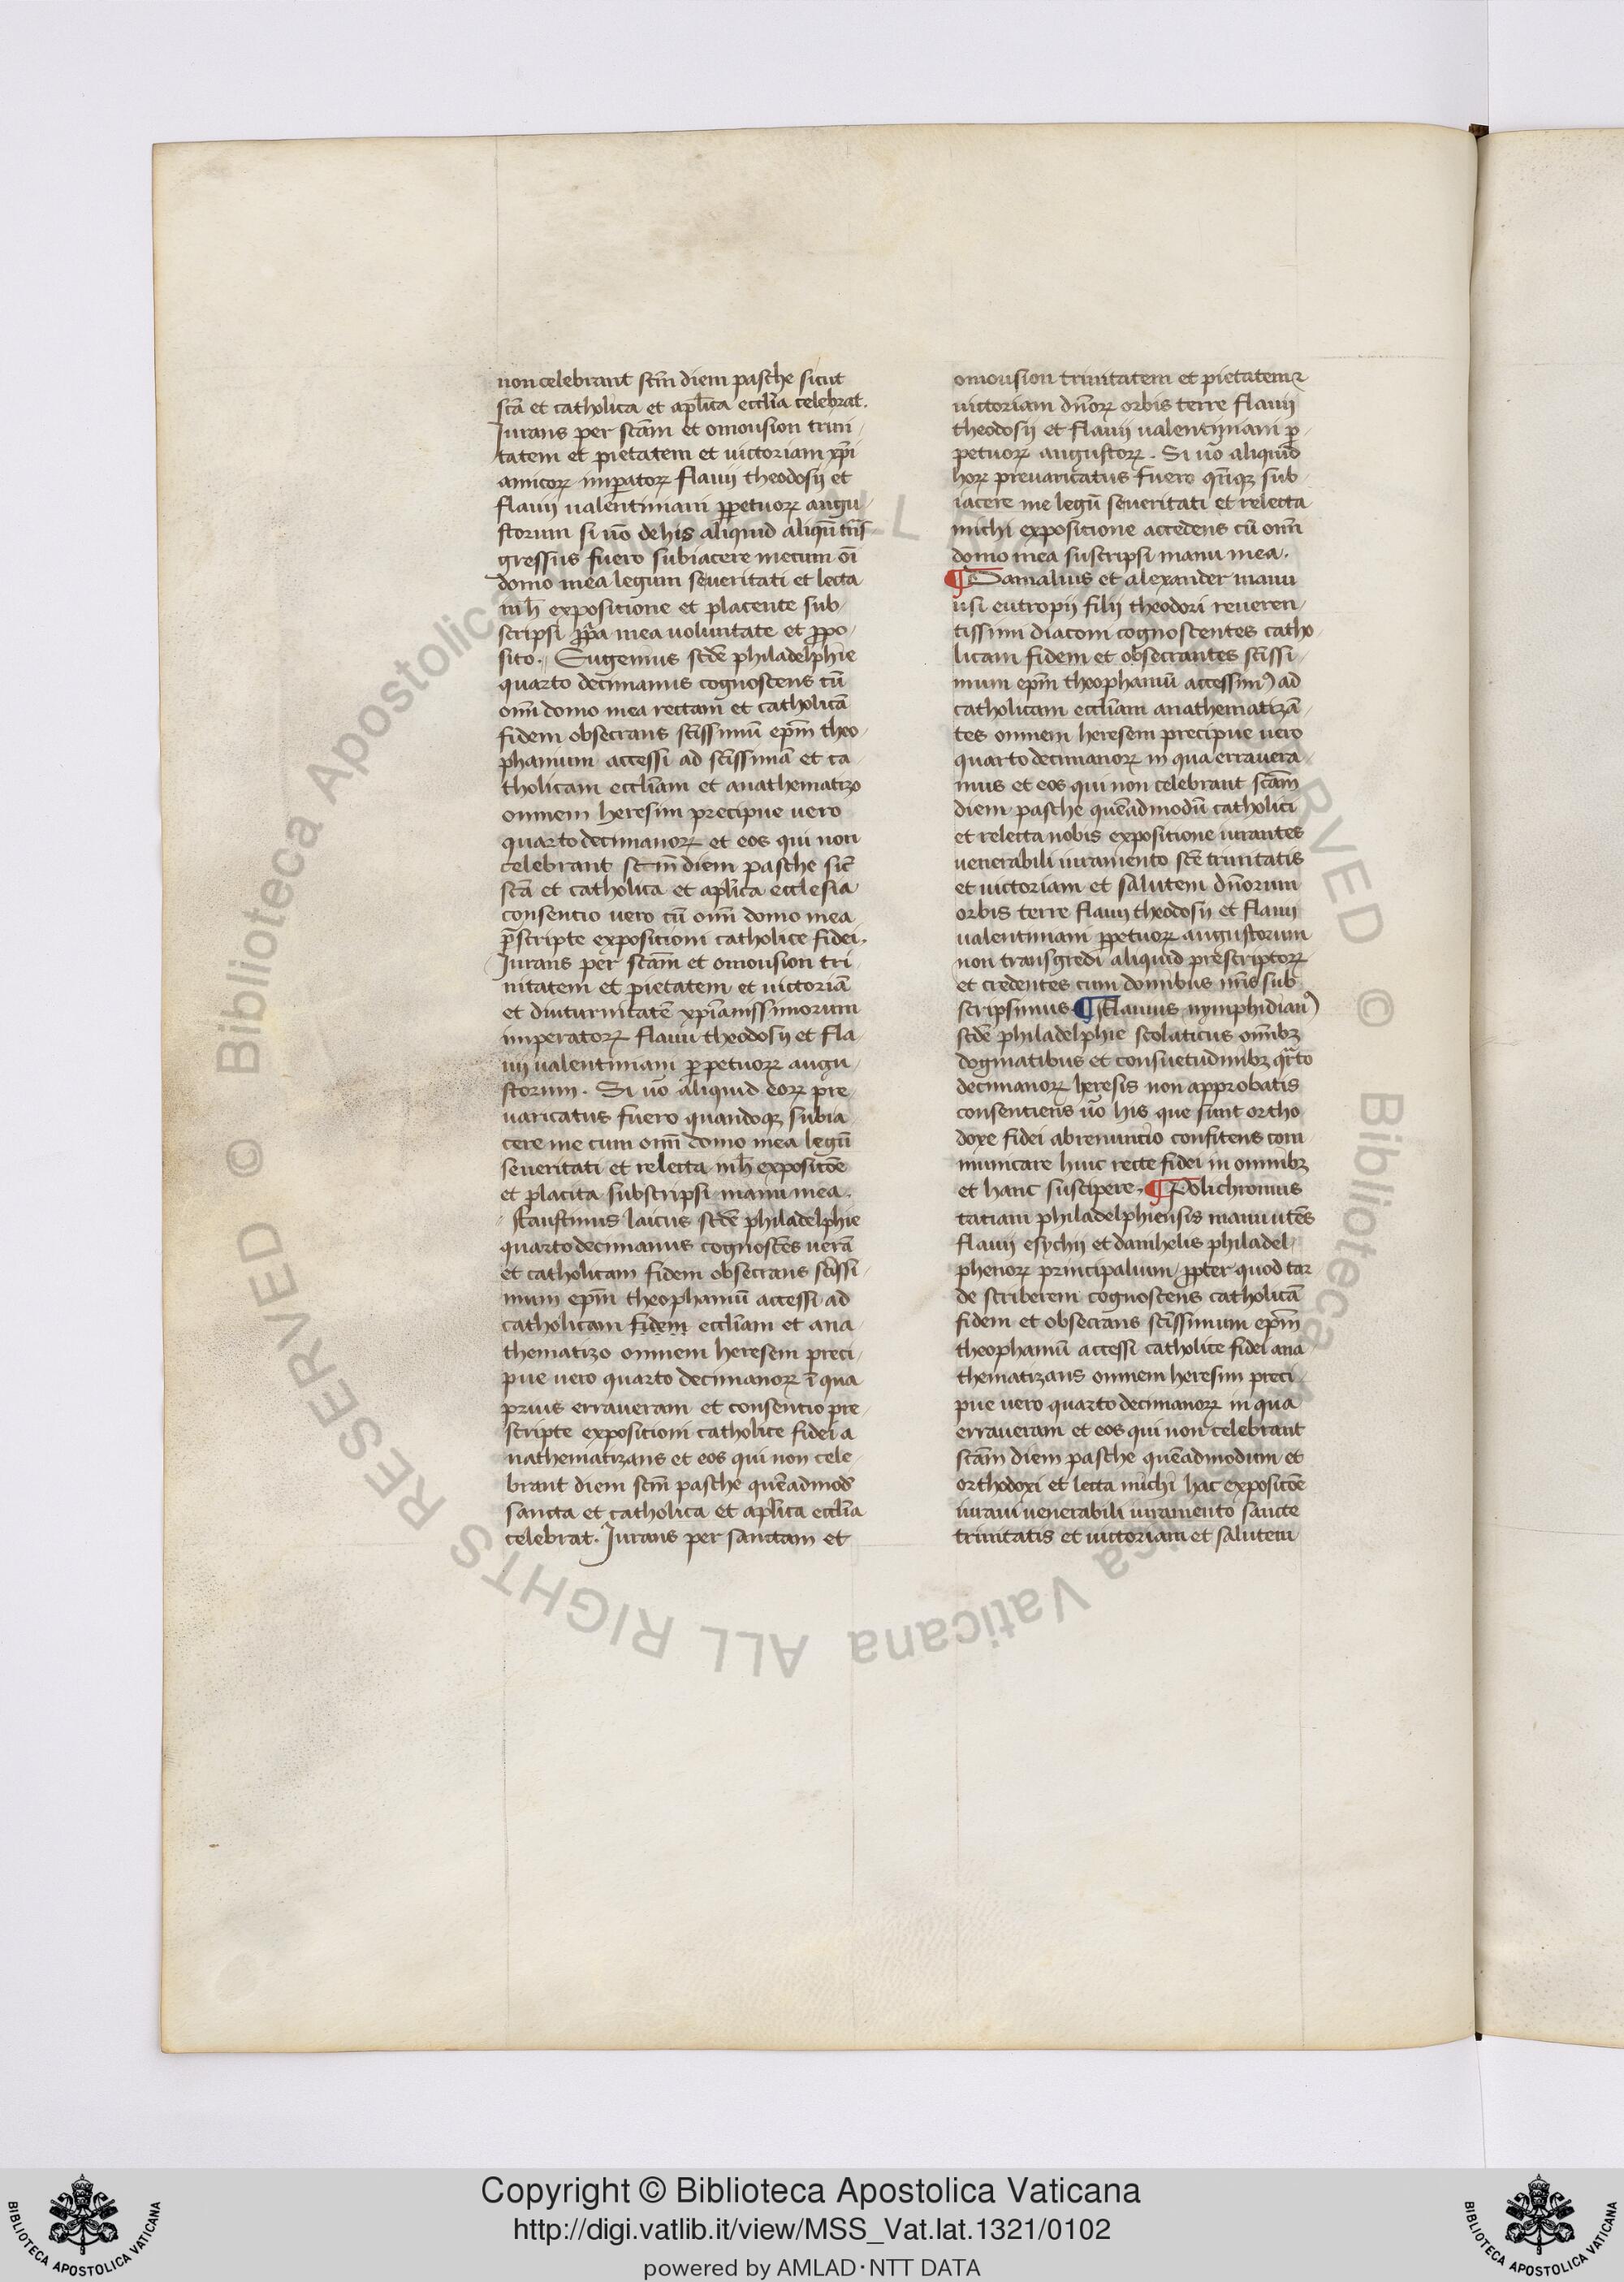 non celebrant scm̄ diem pasche sicut
sc̄a et catholica et apl̄ica eccl̄ia celebrat.
Iurans per sc̄am et omousion trini
tatem et pietatem et uictoriam xp̄i
amicoꝝ imꝑatoꝝ flauij theodosij et
flauij ualentiniani ꝑpetuoꝝ augu
storum si uo̅ de his aliquid aliqn̄ tn̄s
gressus fuero subiacere mecum oī
domo mea legum seueritati et lecta
mh̄ expositione et placente sub
scripsi ꝓp̄a mea uoluntate et ꝓpo
sito. Eugenius scd̄e philadelphie
quarto decimanus cognoscens cū
om̄i domo mea rectam et catholicā
fidem obsecrans sc̄issimū ep̄m theo
phanium accessi ad sc̄issimā et ca
tholicam eccl̄iam et anathematizo
omnem heresim precipue uero
quarto decimanoꝝ et eos qui non
celebrant scm̄ diem pasche sic̄
sc̄a et catholica et apl̄ica ecclesia
consentio uero cū om̄i domo mea
p̄scripte expositioni catholice fidei.
Iurans per sc̄am et omousion tri
nitatem et pietatem et uictoriā
et diuturnitatē xp̄ianissimorum
imperatoꝝ flauii theodosij et fla
uij ualentiniani ꝑpetuoꝝ augu
storum. Si uo̅ aliquid eoꝝ pre
uaricatus fuero quandoqꝫ subia
cere me cum om̄i domo mea legū
seueritati et relecta mh̄ expositōe
et placita subscripsi manu mea.
Faustinus laicus scd̄e philadelphie
quartodecimanus cognoscēs uerā
et catholicam fidem obsecrans sc̄issi
mum ep̄m theophaniū accessi ad
catholicam fidem eccl̄iam et ana
thematizo omnem heresem preci
pue uero quarto decimanoꝝ ī qua
prius erraueram et consentio pre
scripte expositioni catholice fidei a
nathematizans et eos qui non cele
brant diem scm̄ pasche quēadmod̄
sancta et catholica et apl̄ica eccl̄ia
celebrat. Iurans per sanctam et
omousion trinitatem et pietatem ⁊
uictoriam dn̄oꝝ orbis terre flauij
theodosij et flauij ualentiniani ꝑ
petuoꝝ augustoꝝ. Si uo̅ aliquid
hoꝝ preuaricatus fuero qn̄qꝫ sub
iacere me legū seueritati et relecta
michi expositione accedens cū om̄i
domo mea suscripsi manu mea.
¶ Damalius et alexander manu
usi eutropij filij theodori reueren
tissimi diaconi cognoscentes catho
licam fidem et obsecrantes sc̄issi
mum ep̄m theophaniū accessimꝰ ad
catholicam eccl̄iam anathematizā
tes omnem heresem precipue uero
quarto decimanoꝝ in qua erraueра
mus et eos qui non celebrant sc̄am
diem pasche quēadmodū catholici
et relecta nobis expositione iurantes
uenerabili iuramento sc̄e trinitatis
et uictoriam et salutem dn̄orum
orbis terre flauij theodosij et flauij
ualentiniani ꝑpetuoꝝ augustorum
non transgredi aliquid prescriptoꝝ
et credentes cum domibus nr̄is sub
scripsimus ¶ Flauius nymphidianꝰ
scd̄e philadelphie scolaticus om̄ibꝫ
dogmatibus et consuetudinibꝫ qr̄to
decimanoꝝ heresis non approbatis
consentiens uo̅ his que sunt ortho
doxe fidei abrenuncio confitens com
municare huic recte fidei in omnibꝫ
et hanc suscipere. ¶ Polichronius
tatiani philadelphiensis manu utēs
flauij esychij et danihelis philadel
phenoꝝ principalium ꝓpter quod tar
de scriberem cognoscens catholicā
fidem et obsecrans sc̄issimum ep̄m
theophaniū accessi catholice fidei ana
thematizans omnem heresim preci
pue uero quarto decimanoꝝ in qua
erraueram et eos qui non celebrant
sc̄am diem pasche quēadmodum et
orthodoxi et lecta michi hac expositōe
iuraui uenerabili iuramento sancte
trinitatis et uictoriam et salutem
© Biblioteca Apostolica Vaticana ALL RIGHTS RESERVED © Biblioteca Apostolica Vaticana ALL RIGHTS RESERVED
Copyright © Biblioteca Apostolica Vaticana
http://digi.vatlib.it/view/MSS_Vat.lat.1321/0102
powered by AMLAD·NTT DATA
BIBLIOTECA APOSTOLICA VATICANA
BIBLIOTECA APOSTOLICA VATICANA